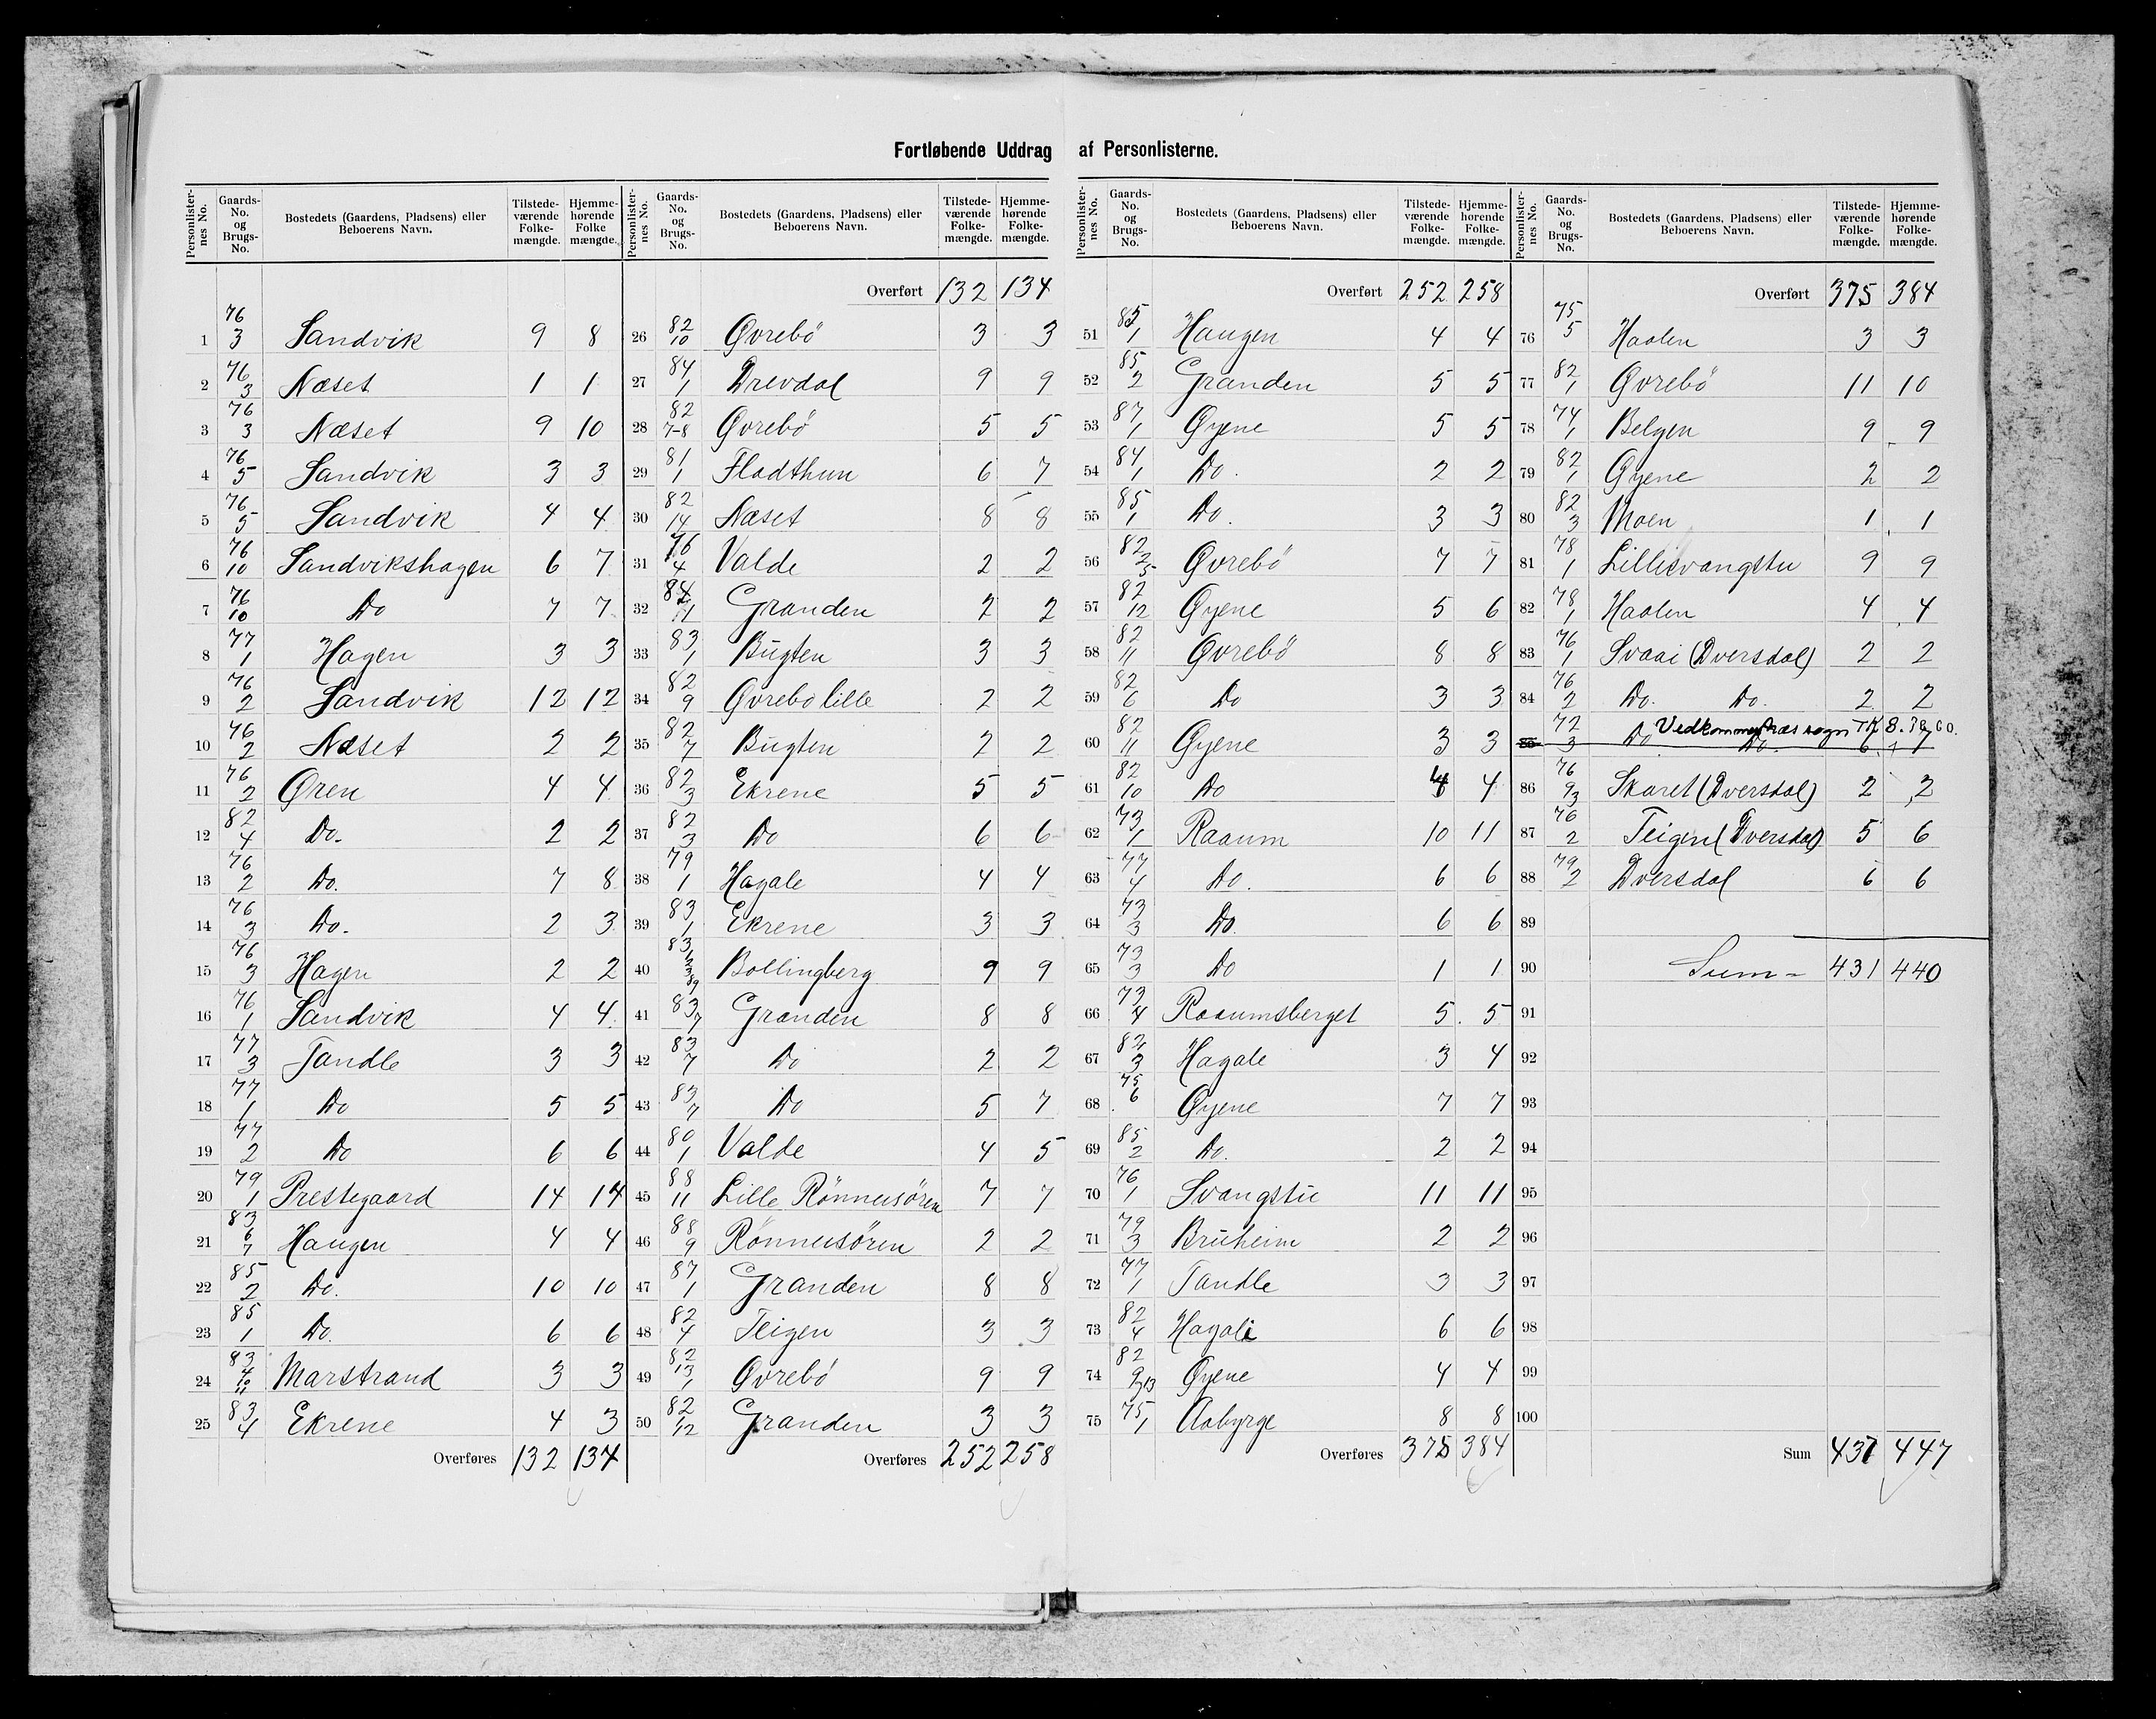 Fortløbende Uddrag af Personlisterne.
Personlister-nes No. | Gaards-No. og Brugs-No. | Bostedets (Gaardens, Pladsens) eller Beboerens Navn. | Tilstede-værende Folke-mængde. | Hjemme-hørende Folke mængde.
1 76/3 Sandvik 9 8
2 76/3 Næset 1 1
3 76/3 Næset 9 10
4 76/5 Sandvik 3 3
5 76/5 Sandvik 4 4
6 76/10 Sandvikshagen 6 7
7 76/10 Do 7 7
8 77/1 Hagen 3 3
9 76/2 Sandvik 12 12
10 76/2 Næset 2 2
11 76/2 Øren 4 4
12 82/4 Do. 2 2
13 76/2 Do. 7 8
14 76/3 Do. 2 3
15 76/3 Hagen 2 2
16 76/1 Sandvik 4 4
17 77/3 Tandle 3 3
18 77/1 Do 5 5
19 77/2 Do 6 6
20 79/1 Prestegaard 14 14
21 83/6 7 Haugen 4 4
22 85/2 Do. 10 10
23 85/1 Do. 6 6
24 83/4 10 11 Marstrand 3 3
25 83/4 Ekrene 4 3
Overføres 132 134
Personlister-nes No. | Gaards-No. og Brugs-No. | Bostedets (Gaardens, Pladsens) eller Beboerens Navn. | Tilstede-værende Folke-mængde. | Hjemme-hørende Folke-mængde.
Overført 132 134
26 82/10 Øvrebö 3 3
27 84/1 Drevdal 9 9
28 82/7-8 Øvrebö 5 5
29 81/1 Fladthun 6 7
30 82/14 Næset 8 8
31 76/4 Valde 2 2
32 Granden 2 2
33 83/1 Bugten 3 3
34 82/9 Øvrebo lille 2 2
35 82/7 Bugten 2 2
36 82/3 Ekrene 5 5
37 82/3 Do 6 6
38 79/1 Hagale 4 4
39 83/1 Ekrene 3 3
40 83 Bollingberg 9 9
41 83/7 Granden 8 8
42 83/7 Do 2 2
43 83/7 Do 5 7
44 80/1 Valde 4 5
45 88/11 Lille Rönneisören 7 7
46 88/9 Rönneisören 2 2
47 87/1 Granden 8 8
48 82/4 Teigen 3 3
49 82/13 1 Øvrebö 9 9
50 82/12 Granden 3 3
Overføres 252 258
Personlister-nes No. | Gaards-No. og Brugs-No. | Bostedets (Gaardens, Pladsens) eller Beboerens Navn. | Tilstede-værende Folke-mængde. | Hjemme-hørende Folke-mængde.
Overført 252 258
51 85/1 Haugen 4 4
52 85/2 Granden 5 5
53 87/1 Øyene 5 5
54 84/1 Do. 2 2
55 85/1 Do. 3 3
56 82/2 5 Øvrebö 7 7
57 82/12 Øyene 5 6
58 82/11 Øvrebö 8 8
59 82/6 Do 3 3
60 82/11 Øyene 3 3
61 82/10 Do 4 4
62 73/1 Raaum 10 11
63 77/4 Do. 6 6
64 73/3 Do. 6 6
65 73/3 Do 1 1
66 73/4 Raaumsberget 5 5
67 82/3 Hagale 3 4
68 75/6 Øyene 7 7
69 85/2 Do. 2 2
70 76/1 Svangstu 11 11
71 79/3 Bruheim 2 2
72 77/1 Tandle 3 3
73 82/4 Hagali 6 6
74 82/9 13 Øyene 4 4
75 75/1 Aabyrge 8 8
Overføres 375 384
Personlister-nes No. | Gaards-No. og Brugs-No. | Bostedets (Gaardens, Pladsens) eller Beboerens Navn. | Tilstede-værende Folke-mængde. | Hjemme-hørende Folke-mængde.
Overført 375 384
76 75/5 Haalen 3 3
77 82/1 Øvrebö 11 10
78 74/1 Belgen 9 9
79 82/1 Øyene 2 2
80 82/3 Moen 1 1
81 78/1 Lillesvangstu 9 9
82 78/1 Haalen 4 4
83 76/1 Svaai (Dversdal) 2 2
84 76/2 Do. Do. 2 2
85 72/3 Do Do. 6 7
86 76/9 3 Skaret (Dversdal) 2 2
87 76/2 Teigen (Dversdal) 5 6
88 79/2 Dversdal 6 6
89
90 Sum = 431 440
91
92
93
94
95
96
97
98
99
100
Sum 437 447